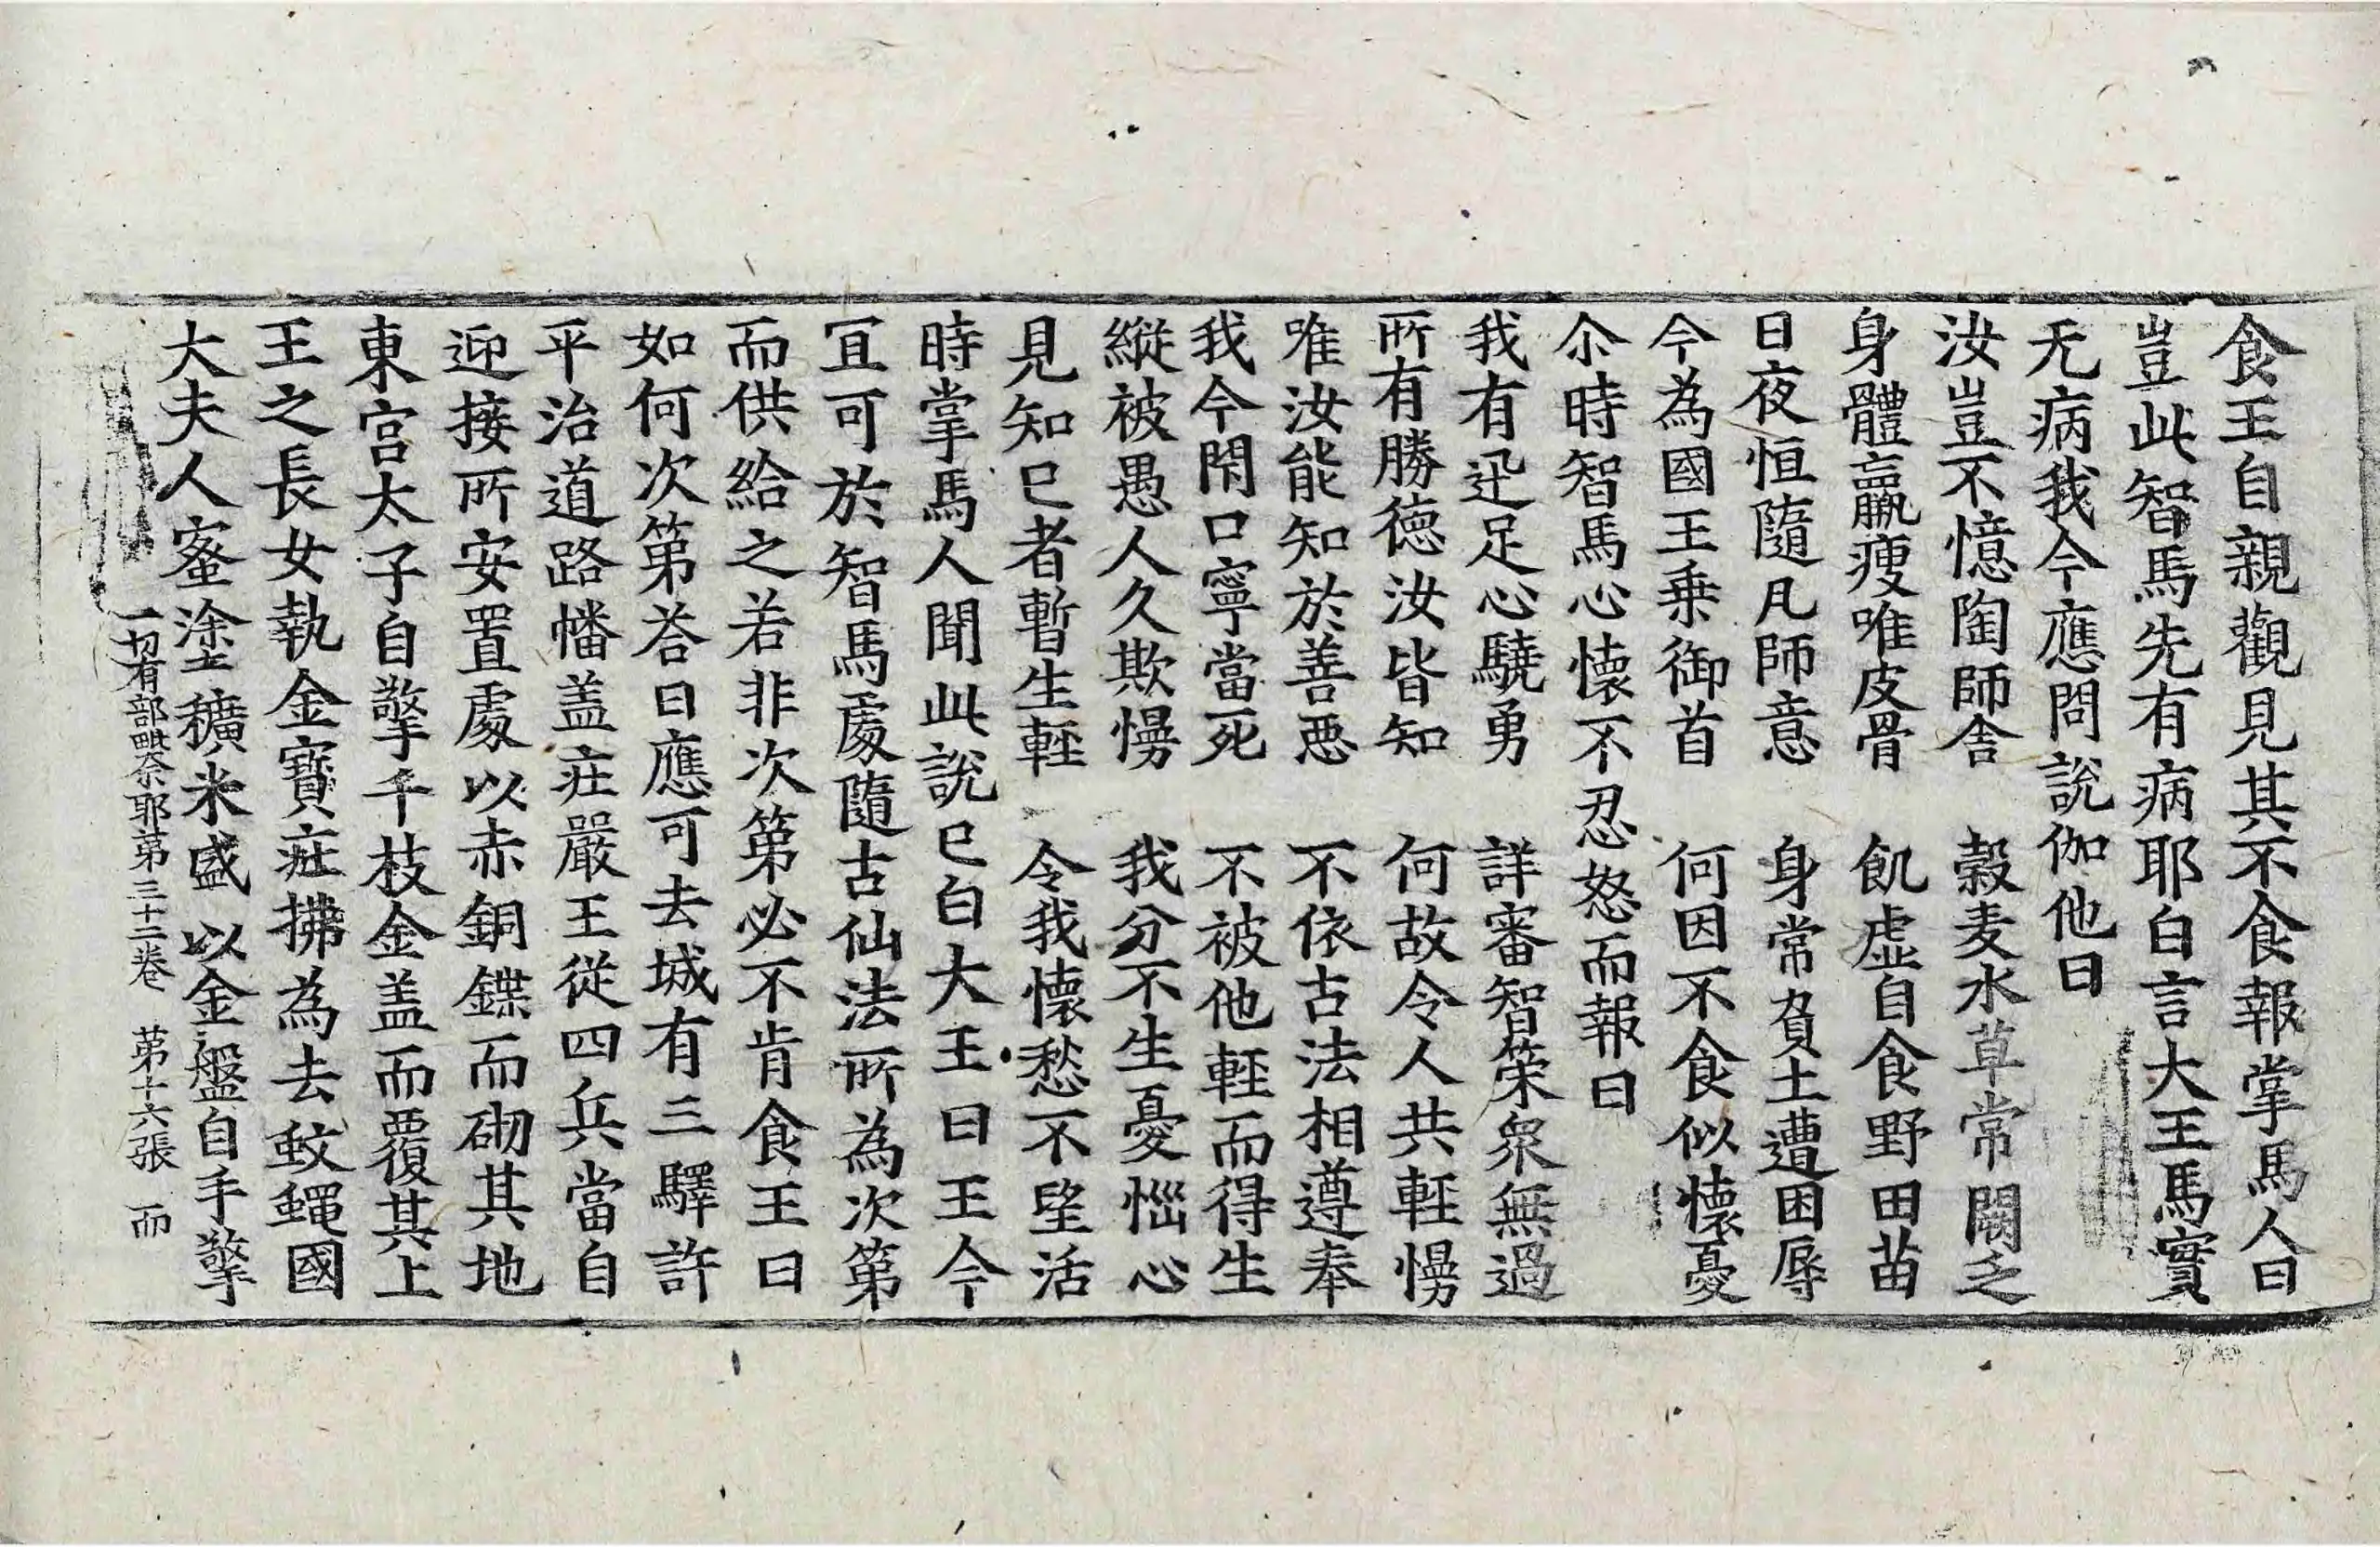 食王自親觀見其不食報掌馬人曰
豈此智馬先有病耶白言大王馬實
无病我今應問說伽他曰
汝豈不憶陶師舍　穀麦水草常闕乏
身體羸瘦唯皮骨　飢虛自食野田苗
日夜恒隨凡師意　身常負土遭困辱
今為國王乗御首　何因不食似懷憂
尒時智馬心懷不忍怒而報曰
我有迅足心驍勇　詳審智策衆無過
所有勝德汝皆知　何故令人共輕慢
唯汝能知於善惡　不依古法相遵奉
我今閇口寧當死　不被他輕而得生
縱被愚人久欺慢　我分不生憂惱心
見知已者暫生輕　令我懷愁不望活
時掌馬人聞此說已白大王曰王今
冝可於智馬處隨古仙法所為次第
而供給之若非次第必不肯食王曰
如何次第荅曰應可去城有三驛許
平治道路幡盖莊嚴王從四兵當自
迎接所安置處以赤銅鍱而砌其地
東宮太子自擎千枝金盖而覆其上
王之長女執金寶莊拂為去蚊蠅國
大夫人蜜塗穬米盛以金盤自手擎
一切有部毗奈耶第三十二卷　第十六張　而